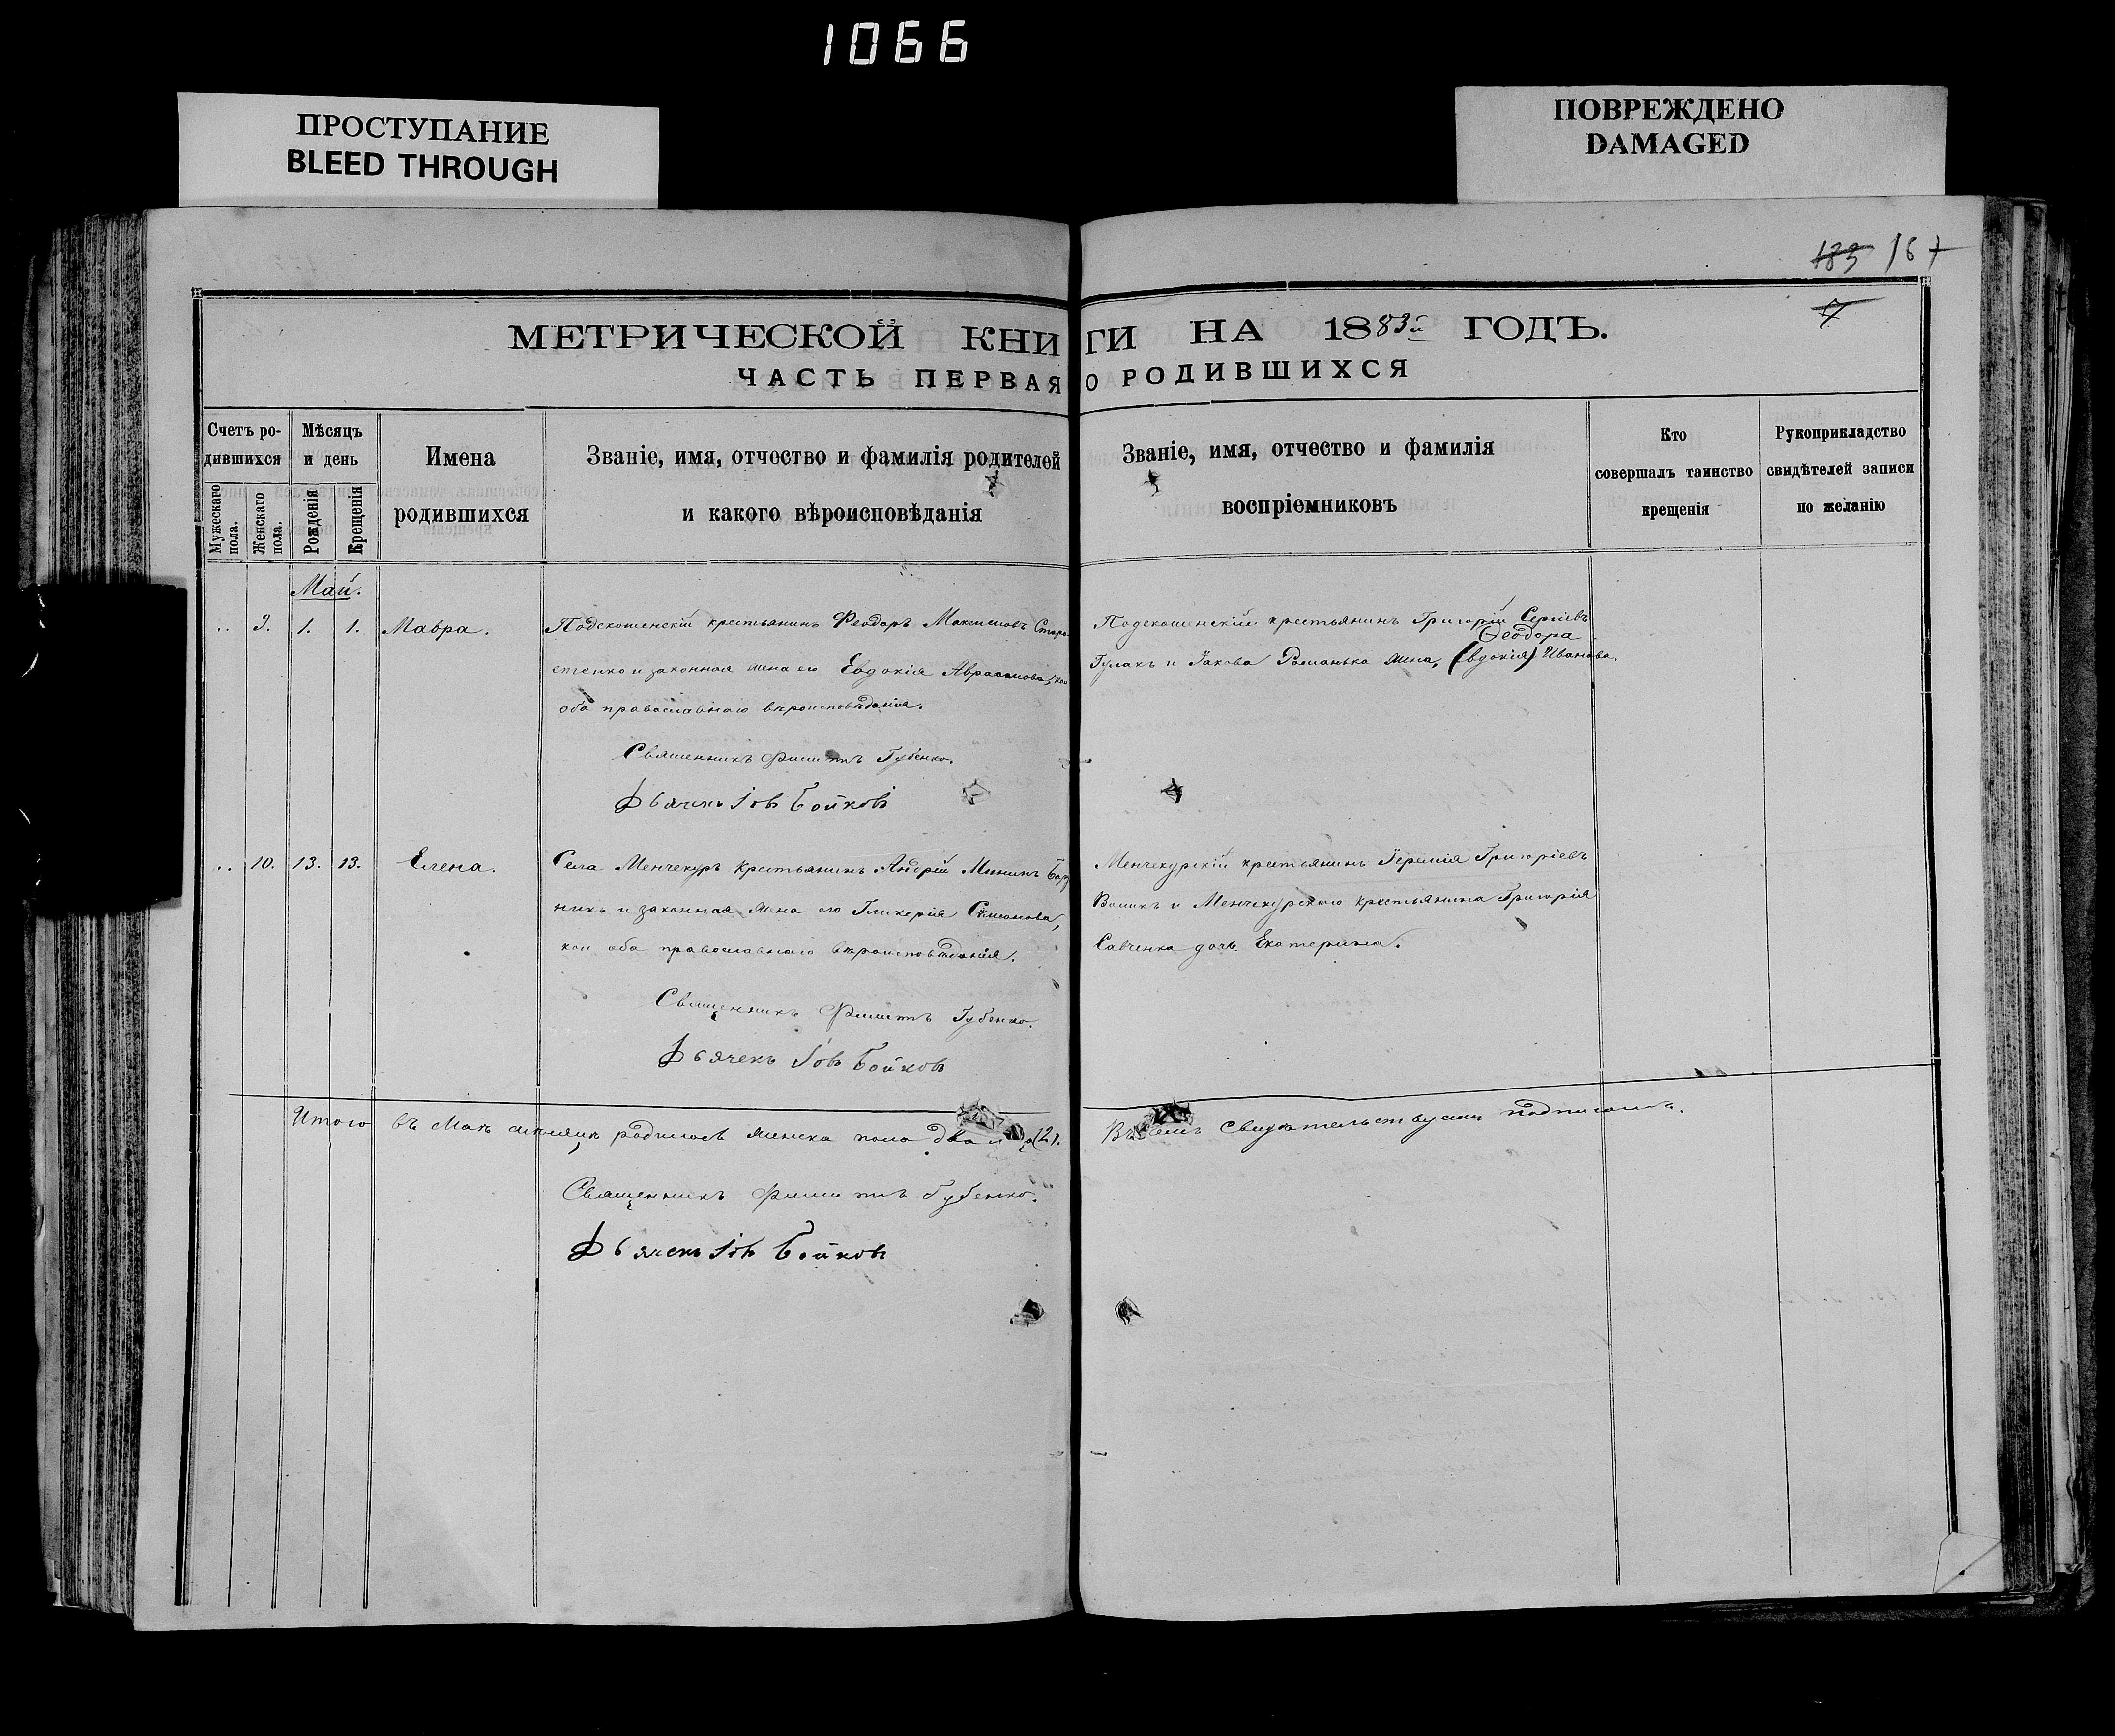 1066
ПРОСТУПАНИЕ
BLEED THROUGH
ПОВРЕЖДЕНО
DAMAGED
183 167
МЕТРИЧЕСКОЙ КНИГИ НА 1883й ГОДЪ.
ЧАСТЬ ПЕРВАЯ О РОДИВШИХСЯ
Счетъ ро-
дившихся
Мужескаго пола.
Женскаго пола.
Мѣсяцъ
и день
Рожденія
Крещенія
Имена
родившихся
Званіе, имя, отчество и фамилія родителей
и какого вѣроисповѣданія
Званіе, имя, отчество и фамилія
воспріемниковъ
Кто
совершалъ таинство
крещенія
Рукоприкладство
свидѣтелей записи
по желанію
Май.
.. 9. 1. 1. Мавра.
крестьянинъ Феодоръ Максимовъ
стенко и законная жена его Евдокія Авраамова, кои
оба православнаго вѣроисповѣданія.
Священникъ Филиппъ Губенко.
Дьячекъ Іовъ Бойковъ
крестьянинъ Григорій Сергіевъ
Феодора
Гулакъ и Іакова Романька жена, (Евдокія) Иванова.
.. 10. 13. 13. Елена.
Села Менчекуръ крестьянинъ Андрей Мининъ
никъ и законная жена его Гликерія Симеонова,
кои оба православнаго вѣроисповѣданія.
Священникъ Филиппъ Губенко.
Дьячекъ Іовъ Бойковъ
Менчекурскій крестьянинъ Іеремія Григоріевъ
Воликъ и Менчекурскаго крестьянина Григорія
Савченка дочь Екатерина.
Итого въ Маѣ мѣсяцѣ родилось женска пола два (2).
Священникъ Филиппъ Губенко.
Дьячекъ Іовъ Бойковъ
Въ семъ свидѣтельствуемъ подписомъ.